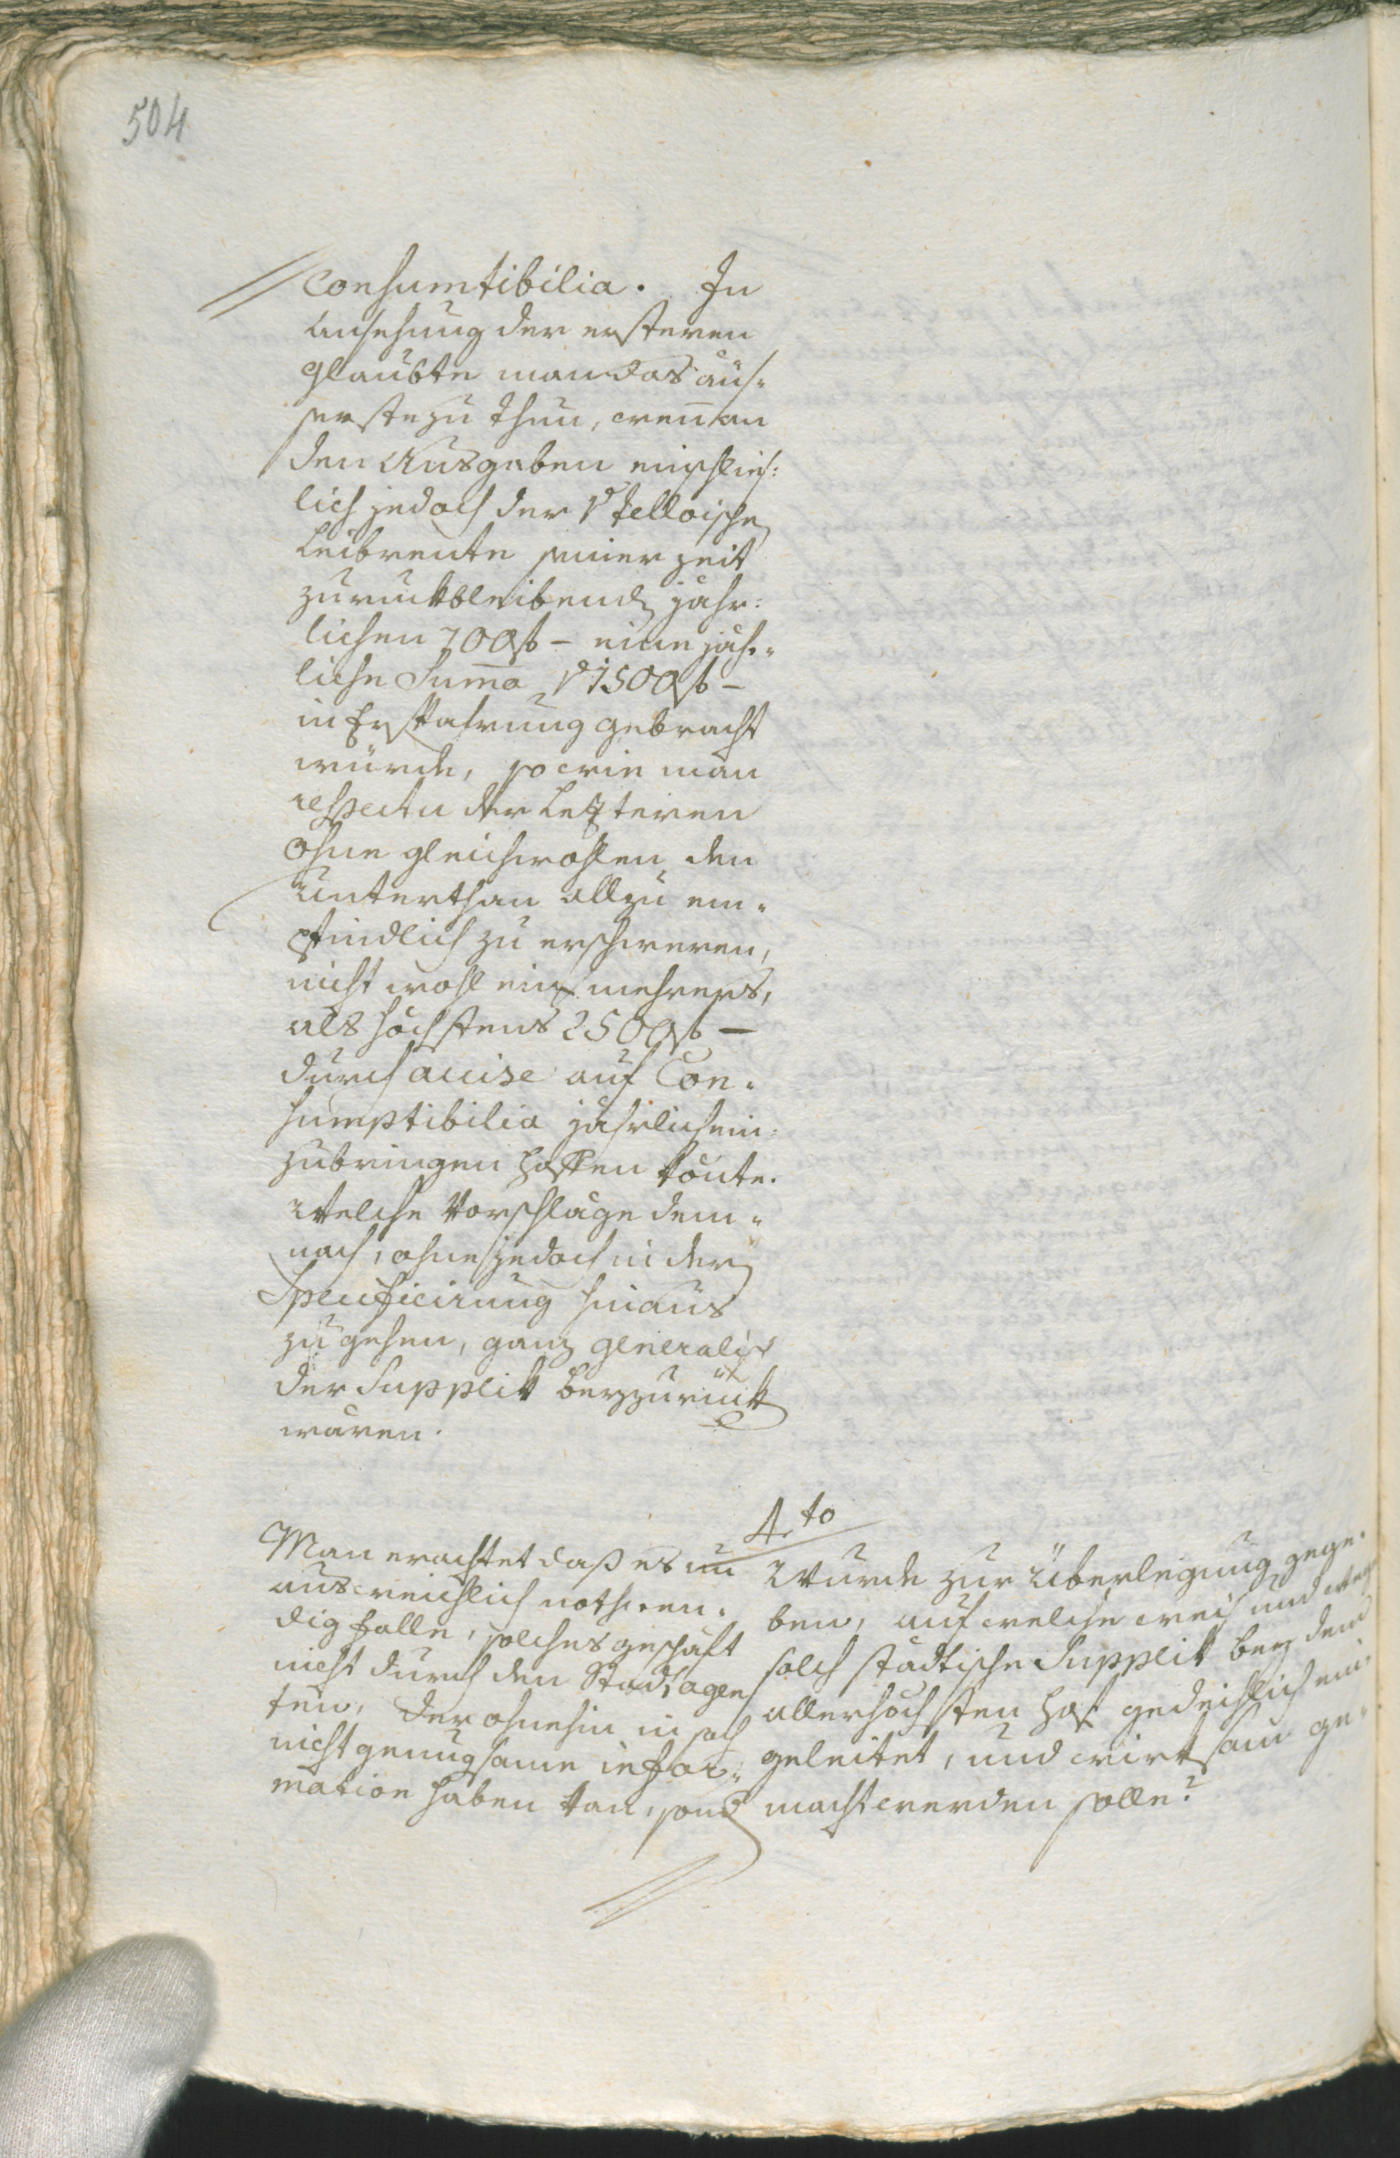 504
Consumtibilia. In
Ansehung der ersteren
glaubte man das äus-
serste zu thun, wen̄ an
den Ausgaben einschlies:
lich jedoch der v Telloische
Leibrente seiner zeit
zuruckbleibend jähr:
lichen 700 f – eine jähr-
liche Sum̄a v 1500 f –
in Ersparung gebracht
würde, so wie man
respectu der Letzteren
ohne gleichwohlen den
Unterthan allzu em-
pfindlich zu erschweren,
nicht wohl ein mehrers,
als höchstens 2500 f –
durch accise auf Con-
sumptibilia jährlich ein-
zubringen hoffen könte.
Welche Vorschläge dem-
nach, ohne jedoch in der
Specificirung hinaus
zu gehen, ganz generaliter
der Supplik beyzuruck
wären.
4.to
Man erachtet daß es un
ausweichlich nothwen-
dig falle, solches geschäft
nicht durch den Stadtagen
ten, der ohnehin in sach
nicht genugsame infor-
mation haben kan, sond
Wurde zur Überlegung gege-
ben, auf welche weis und weeg
solch städtische Supplik bey dem
allerhöchsten Hof gedeihlich ein-
geleitet, und wirksam ge-
macht werden solle?